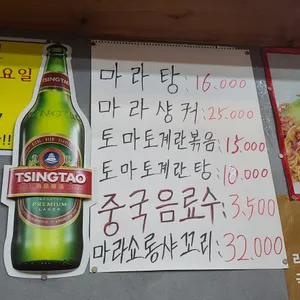 요일
TSINGTAO
마라탕: 16.000
마라샹궈: 25.000
토마토계란볶음: 15,000
토마토계란탕: 10.000
TSINGTAO
PREMIUM
LAGER
중국음료수: 3,500
마라쇼룽샤꼬리: 32.000